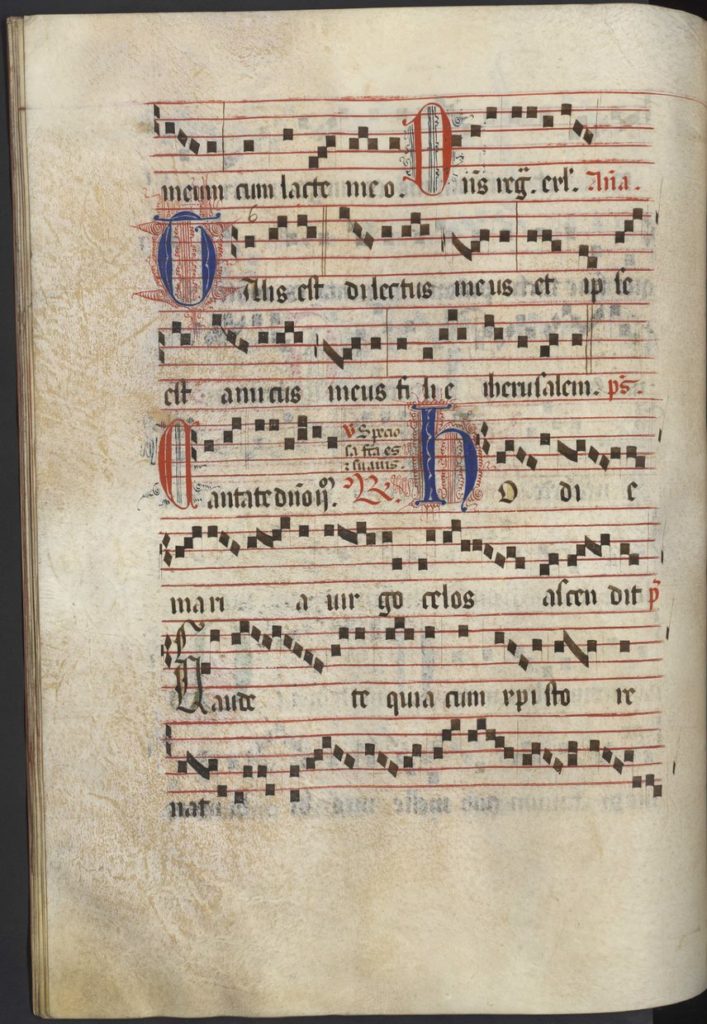 meum cum lacte meo. Dñs reg̃. erl̃. Aña.
6
Talis est dilectus meus et ipse
est amicus meus filie iherusalem. ps̃.
Cantate dño
℣ Specio
sa fca es
⁊ suauis.
℟. Hodie
maria uirgo celos ascendit p̃
Gaude te quia cum xpisto re
nat